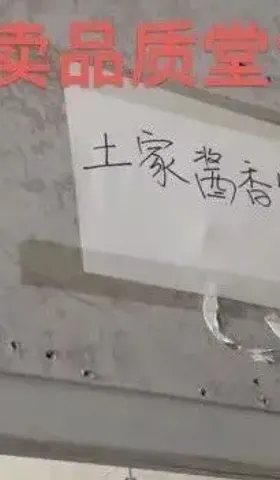 卖品质堂
土家酱香